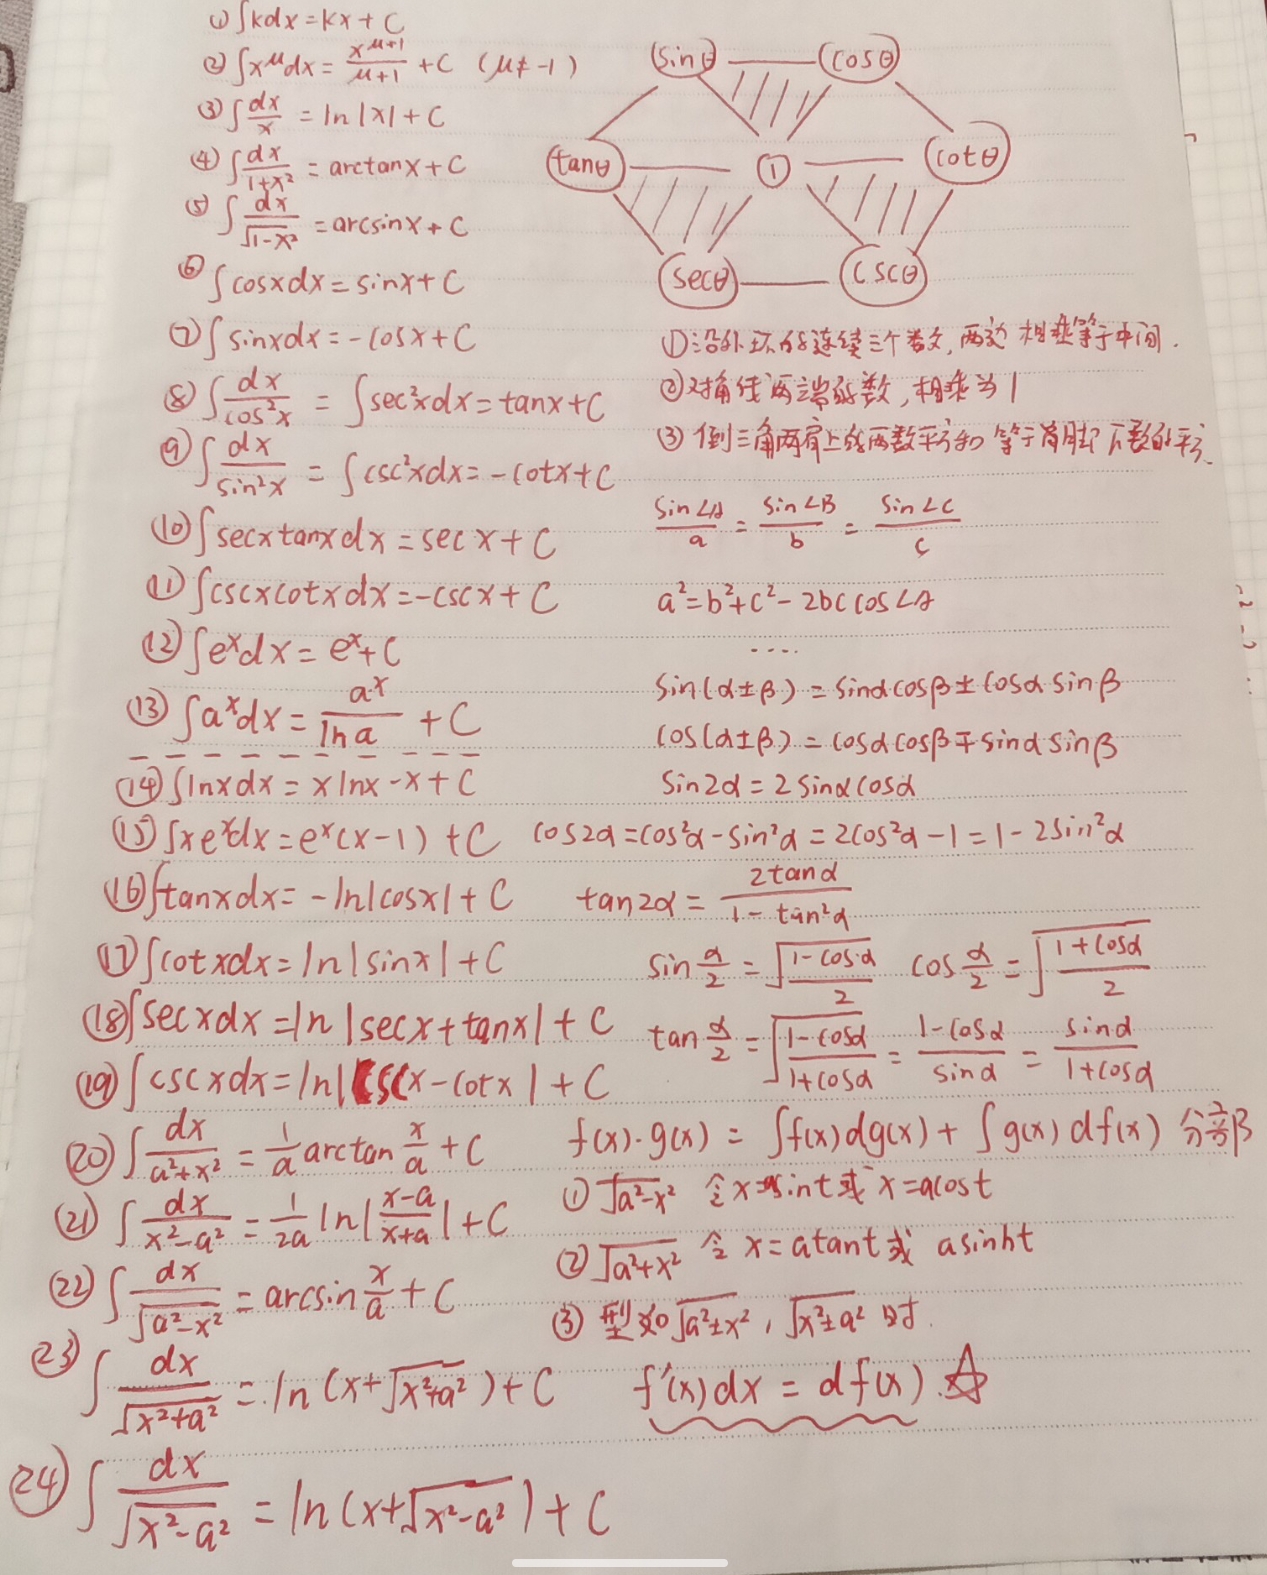 (1) ∫kdx=kx+C
(2) ∫x^μdx=x^(μ+1)/(μ+1)+C (μ≠-1)
(3) ∫dx/x=ln|x|+C
(4) ∫dx/(1+x²)=arctanx+C
(5) ∫dx/√(1-x²)=arcsinx+C
⑥ ∫cosxdx=sinx+C
⑦ ∫sinxdx=-cosx+C
⑧ ∫dx/cos²x=∫sec²xdx=tanx+C
⑨ ∫dx/sin²x=∫csc²xdx=-cotx+C
⑩ ∫secxtanxdx=secx+C
⑪ ∫cscxcotxdx=-cscx+C
⑫ ∫e^xdx=e^x+C
⑬ ∫a^xdx=a^x/lna+C
⑭ ∫lnxdx=xlnx-x+C
⑮ ∫xe^xdx=e^x(x-1)+C
⑯ ∫tanxdx=-ln|cosx|+C
⑰ ∫cotxdx=ln|sinx|+C
⑱ ∫secxdx=ln|secx+tanx|+C
⑲ ∫cscxdx=ln|cscx-cotx|+C
⑳ ∫dx/(a²+x²)=1/a arctan x/a+C
(21) ∫dx/(x²-a²)=1/2a ln|(x-a)/(x+a)|+C
(22) ∫dx/√(a²-x²)=arcsin x/a+C
(23) ∫dx/√(x²+a²)=ln(x+√(x²+a²))+C
(24) ∫dx/√(x²-a²)=ln(x+√(x²-a²))+C
sinθ cosθ
tanθ 1 cotθ
secθ cscθ
①沿外环的连续三个数,两边相乘等于中间.
②对角线两端的数,相乘为1
③倒三角两肩上的两数平方和等于脚下数的平方.
sin∠A/a=sin∠B/b=sin∠C/c
a²=b²+c²-2bccos∠A
....
sin(α±β)=sinαcosβ±cosαsinβ
cos(α±β)=cosαcosβ∓sinαsinβ
sin2α=2sinαcosα
cos2α=cos²α-sin²α=2cos²α-1=1-2sin²α
tan2α=2tanα/(1-tan²α)
sin α/2=√((1-cosα)/2) cos α/2=√((1+cosα)/2)
tan α/2=√((1-cosα)/(1+cosα))=(1-cosα)/sinα=sinα/(1+cosα)
f(x)·g(x)=∫f(x)dg(x)+∫g(x)df(x) 分部
①√(a²-x²) 令x=asint或x=acost
②√(a²+x²) 令x=atant或asinht
③型如√(a²±x²),√(x²±a²)时.
f'(x)dx=df(x).☆